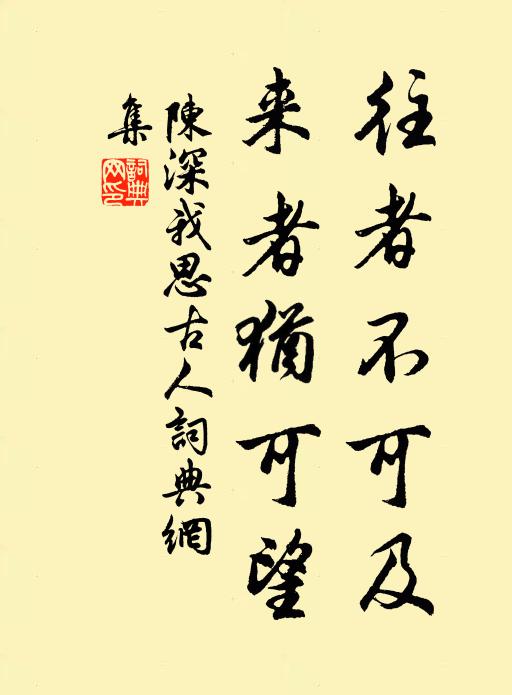 往者不可及
来者猶可望
陳深我思古人詞典網
集
詞典網印